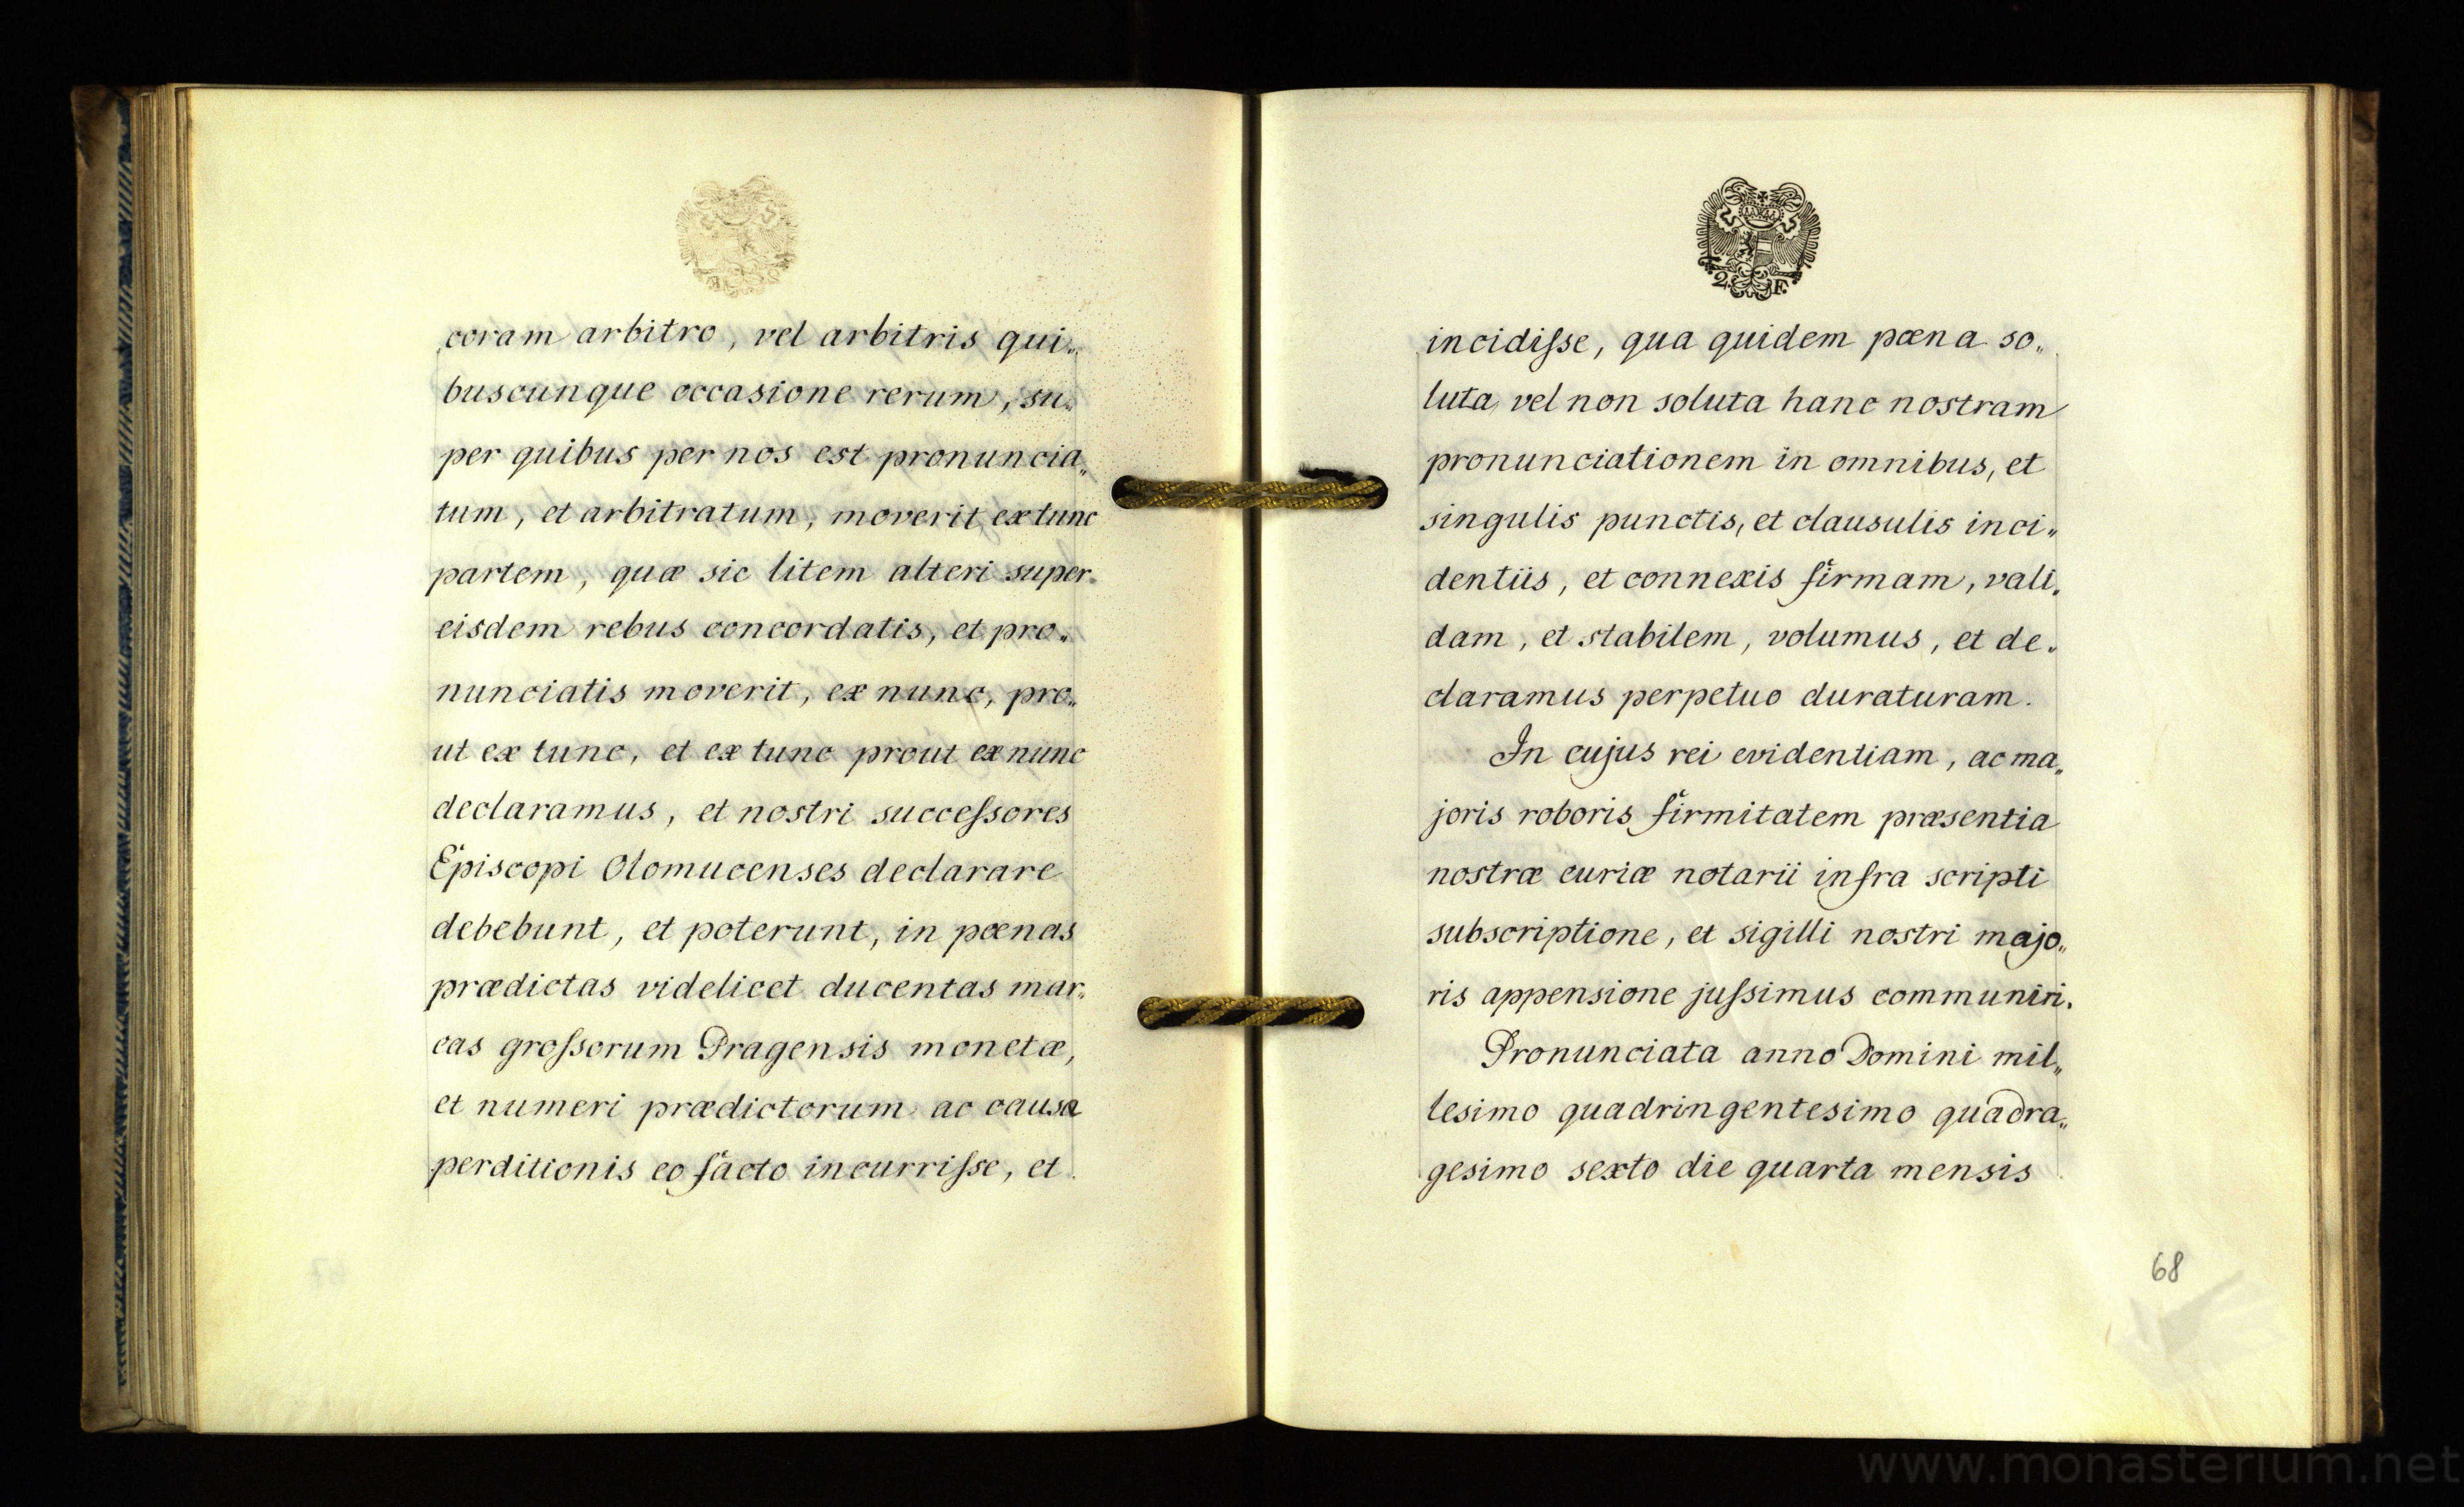 coram arbitro, vel arbitris qui„
buscunque occasione rerum, su„
per quibus per nos est pronuncia„
tum, et arbitratum, moverit, ex tunc
partem, quæ sic litem alteri super
eisdem rebus concordatis, et pro„
nunciatis moverit, ex nunc, pro„
ut ex tunc, et ex tunc prout ex nunc
declaramus, et nostri succeſsores
Episcopi Olomucenses declarare
debebunt, et poterunt, in pœnas
prædictas videlicet ducentas mar„
cas groſsorum Pragensis monetæ,
et numeri prædictorum ac causa
perditionis eo facto incurriſse, et
2. F.
incidiſse, qua quidem pœna so„
luta, vel non soluta hanc nostram
pronunciationem in omnibus, et
singulis punctis, et clausulis inci„
dentiis, et connexis firmam, vali„
dam, et stabilem, volumus, et de„
claramus perpetuo duraturam.
In cujus rei evidentiam, ac ma„
joris roboris firmitatem præsentia
nostræ curiæ notarii infra scripti
subscriptione, et sigilli nostri majo„
ris appensione juſsimus communiri.
Pronunciata anno Domini mil„
lesimo quadringentesimo quadra„
gesimo sexto die quarta mensis
68
www.monasterium.net